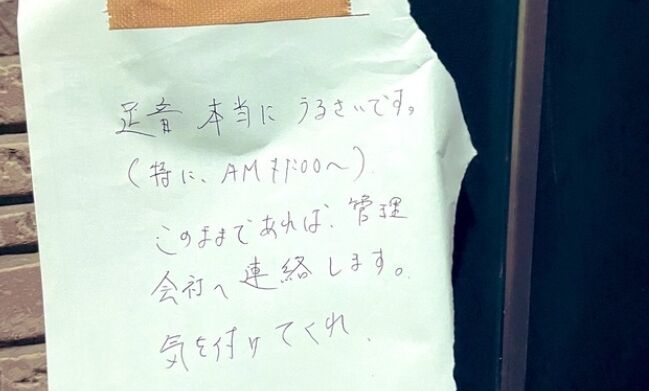 足音 本当に うるさいです。
(特に、AM 7:00〜)
このままであれば、管理
会社へ連絡します。
気を付けてくれ.